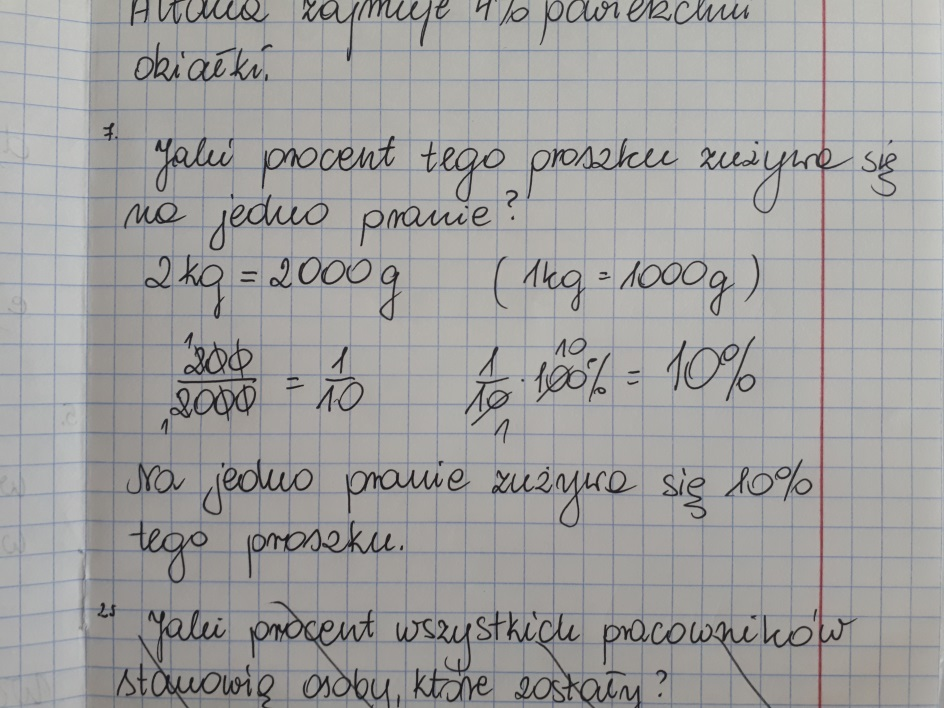 Altana zajmuje 4% powierzchni
działki.
7.
Jaki procent tego proszku zużywa się
na jedno pranie?
2kg = 2000g (1kg = 1000g)
1 200/2000 1 = 1/10 1/10 1 · 100% 10 = 10%
Na jedno pranie zużywa się 10%
tego proszku.
25
Jaki procent wszystkich pracowników
stanowią osoby, które zostały?